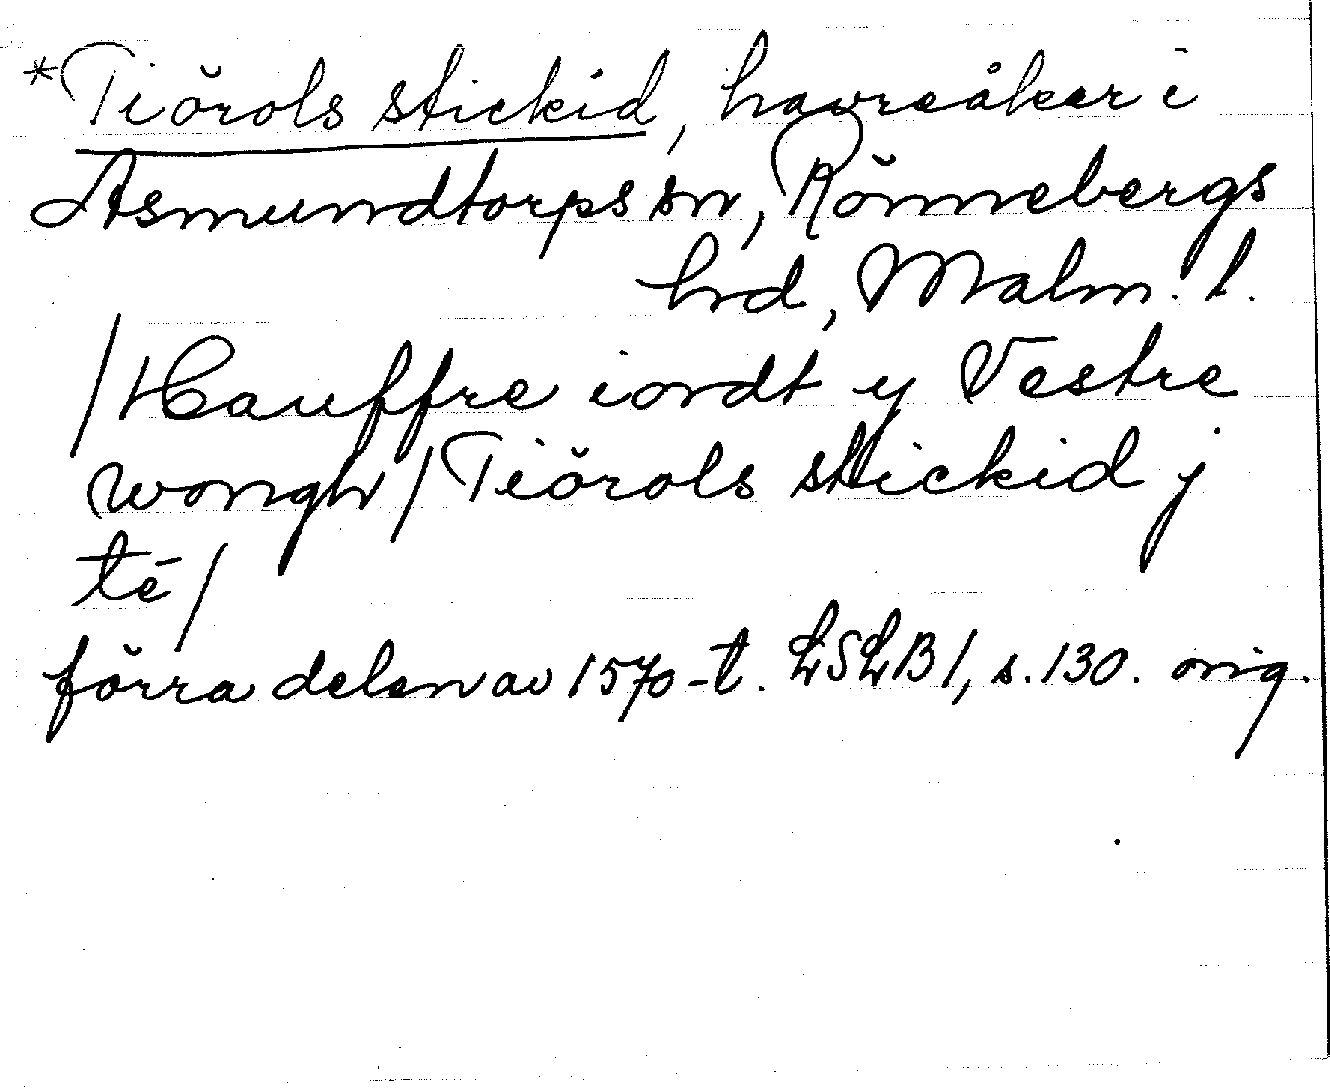 *Tiörols stickid, havreåker i
Asmundtorps sn, Rönnebergs
hrd, Malm. l.
/Hauffre iordt y Vestre
wongh/Tiörols stickid j
tē/
förra delen av 1570-t. LSLB1, s. 130. orig.